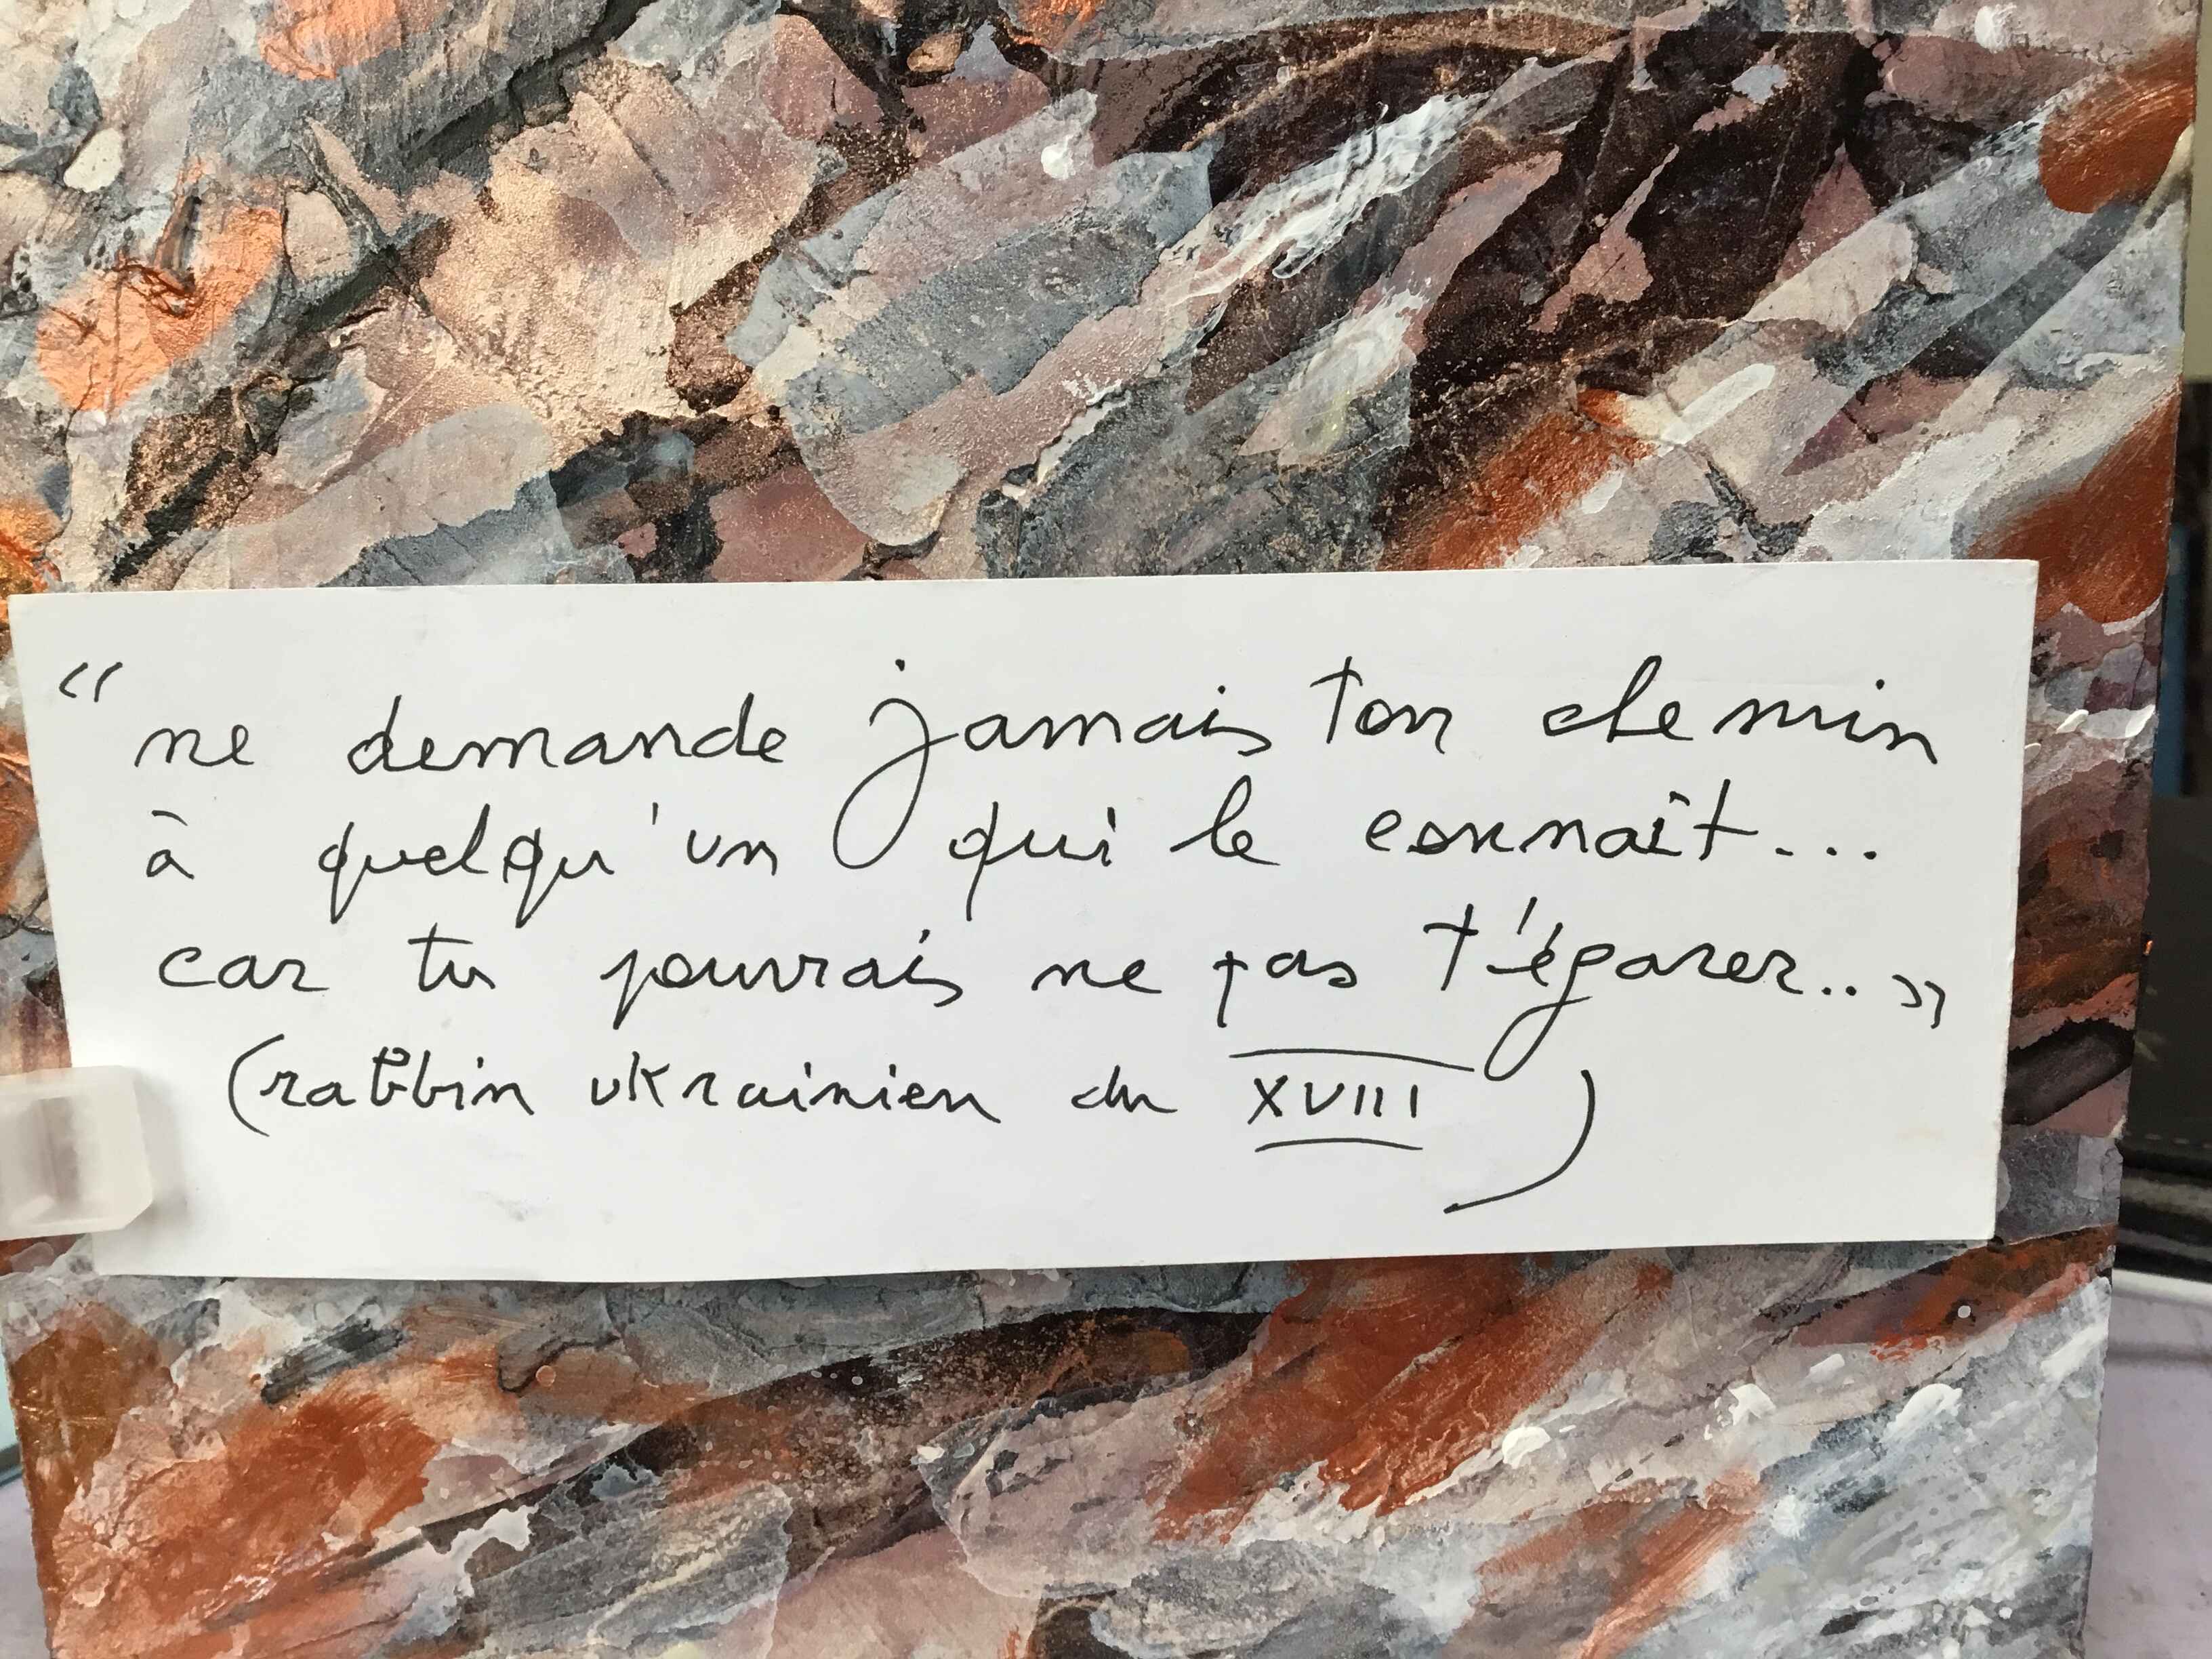 “ ne demande jamais ton chemin
à quelqu'un qui le connaît...
car tu pourrais ne pas t'égarer.. »
(rabbin ukrainien du XVIII)